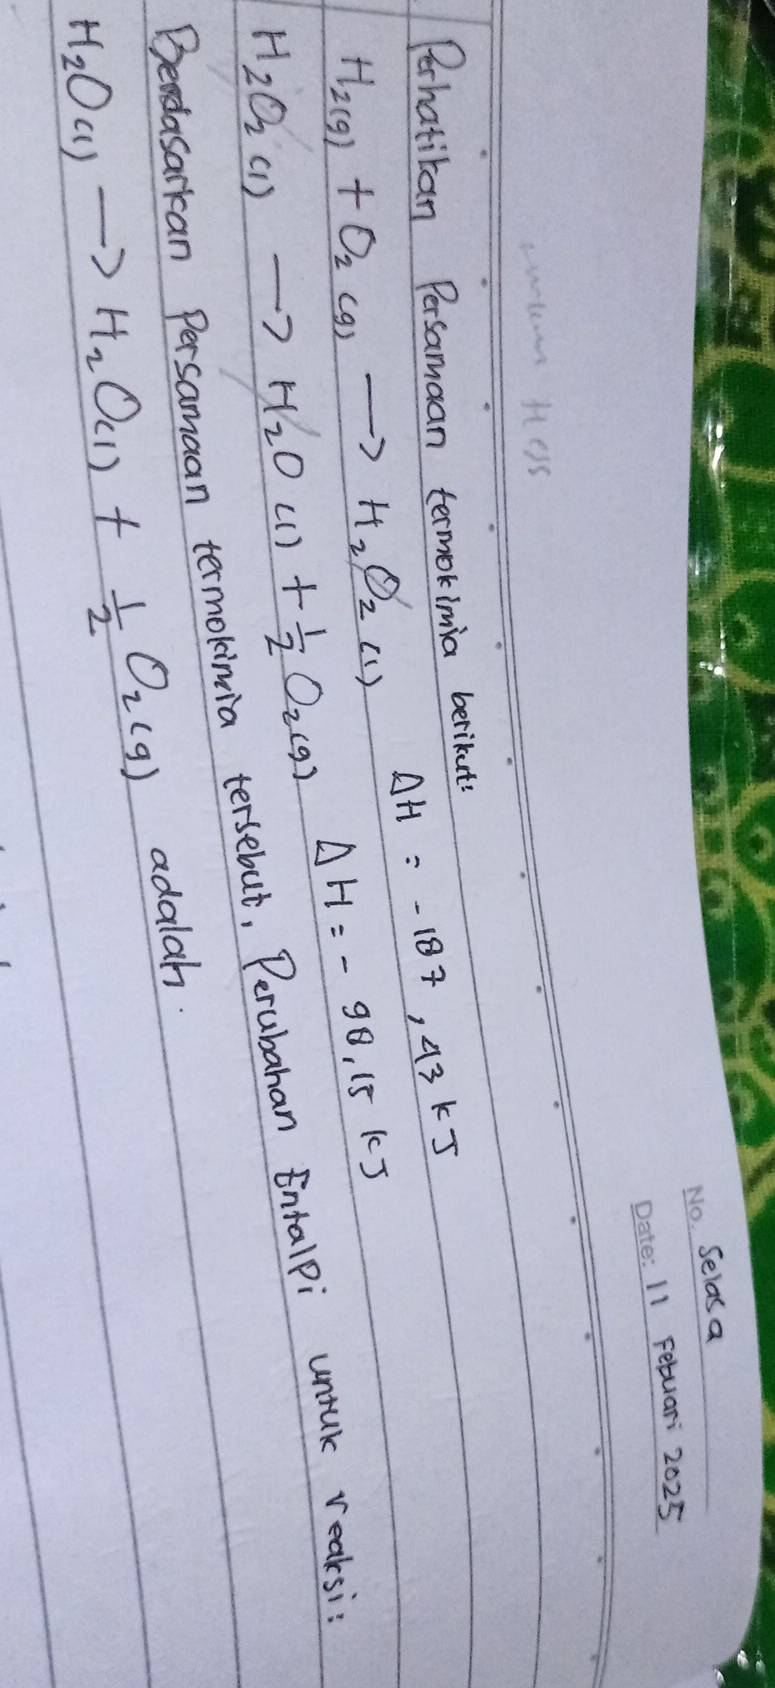 No. Selasa
Date: 11 Febuari 2025
Hess
Perhatikan Persamaan termokimia berikut:
H₂(g) + O₂(g) → H₂O₂(l) ΔH = -187,43 kJ
H₂O₂(l) → H₂O(l) + 1/2 O₂(g) ΔH = -98,15 kJ
Berdasarkan Persamaan termokimia tersebut, Perubahan Entalpi untuk reaksi:
H₂O(l) → H₂O(l) + 1/2 O₂(g) adalah.